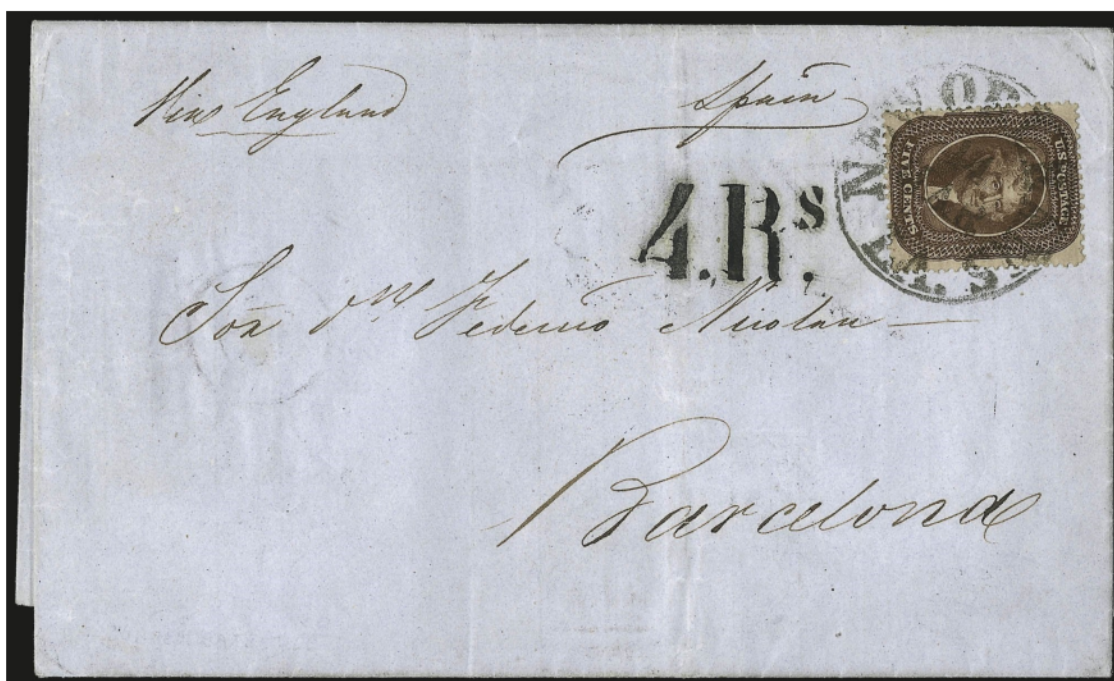 Via England
Spain
NEW OR
LA.
U.S. POSTAGE
FIVE CENTS
4.Rs.
Sor. Dn. Federico Nicolau
Barcelona